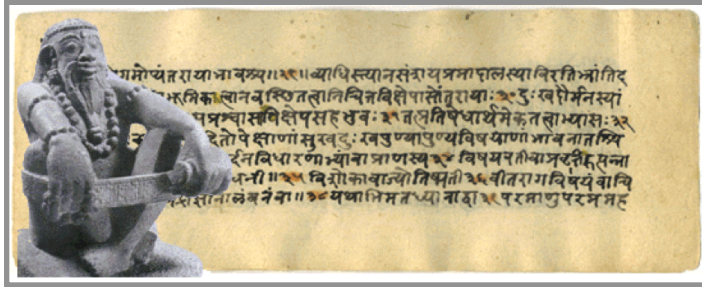 गमोप्यंतरायाभावश्च॥२९॥व्याधिस्त्यानसंशयप्रमादालस्याविरतिभ्रांतिद
भूमिकत्वानवस्थितत्वानिचित्तविक्षेपास्तेंतरायाः३०दुःखदौर्मनस्यां
प्रश्वासाविक्षेपसहभुवः३१तत्प्रतिषेधार्थमेकतत्वाभ्यासः३२
दितोपेक्षाणांसुखदुःखपुण्यापुण्यविषयाणांभावनातश्चि
र्दनविधारणाभ्यांवाप्राणस्य३४विषयवतीवाप्रवृत्तिरुत्पन्ना
धनी॥३५विशोकावाज्योतिष्मती३६वीतरागविषयंवाचि
ज्ञानालंबनंवा॥३८यथाभिमतध्यानाद्वा३९परमाणुपरममह